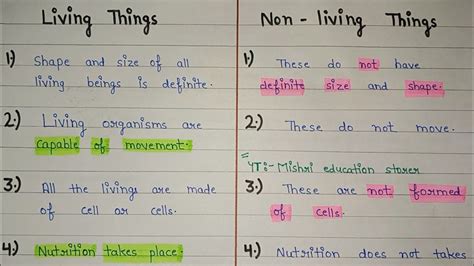 Living Things
1.) Shape and size of all
living beings is definite.
2.) Living organisms are
capable of movement.
3.) All the livings are made
of cell or cells.
4.) Nutrition takes place.
Non - living Things
1.) These do not have
definite size and shape.
2.) These do not move.
YT:- Mishri education storer
3.) These are not formed
of cells.
4.) Nutrition does not takes